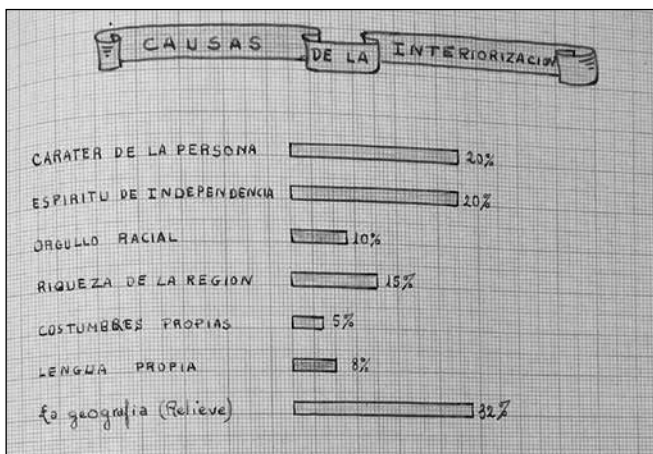 CAUSAS DE LA INTERIORIZACION
CARATER DE LA PERSONA 20%
ESPIRITU DE INDEPENDENCIA 20%
ORGULLO RACIAL 10%
RIQUEZA DE LA REGION 15%
COSTUMBRES PROPIAS 5%
LENGUA PROPIA 8%
La geografia (Relieve) 32%